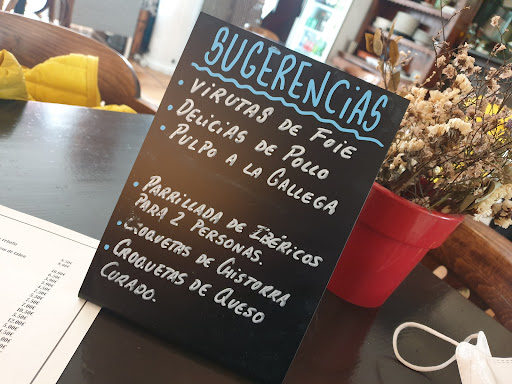 SUGERENCIAS
• VIRUTAS DE FOIE
• DELICIAS DE POLLO
• PULPO A LA GALLEGA
• PARRILLADA DE IBÉRICOS
PARA 2 PERSONAS.
• CROQUETAS DE CHISTORRA
• CROQUETAS DE QUESO
CURADO.